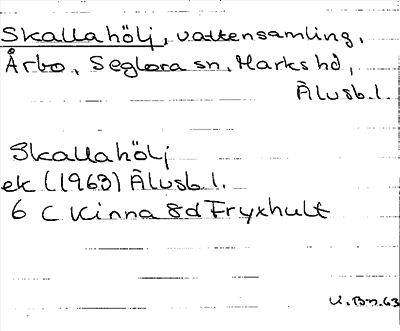 Skallahölj, vattensamling,
Årbo, Seglora sn, Marks hd,
Älvsb. l.
Skallahölj
ek (1963) Älvsb. l.
6 C Kinna 8d Fryxhult
K. Bn. 63